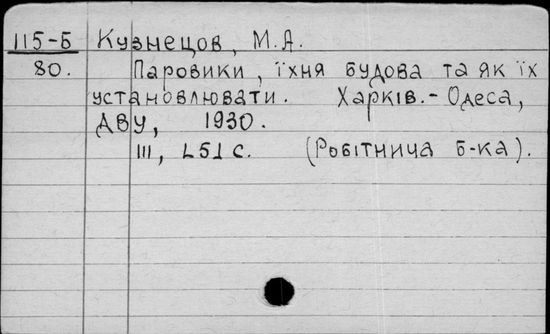 115-Б Кузнецов, М.А.
80. Паровики, їхня будова та як їх
установлювати. Харків.-Одеса,
ДВУ, 1930.
III, 151 с. (Робітнича б-ка).